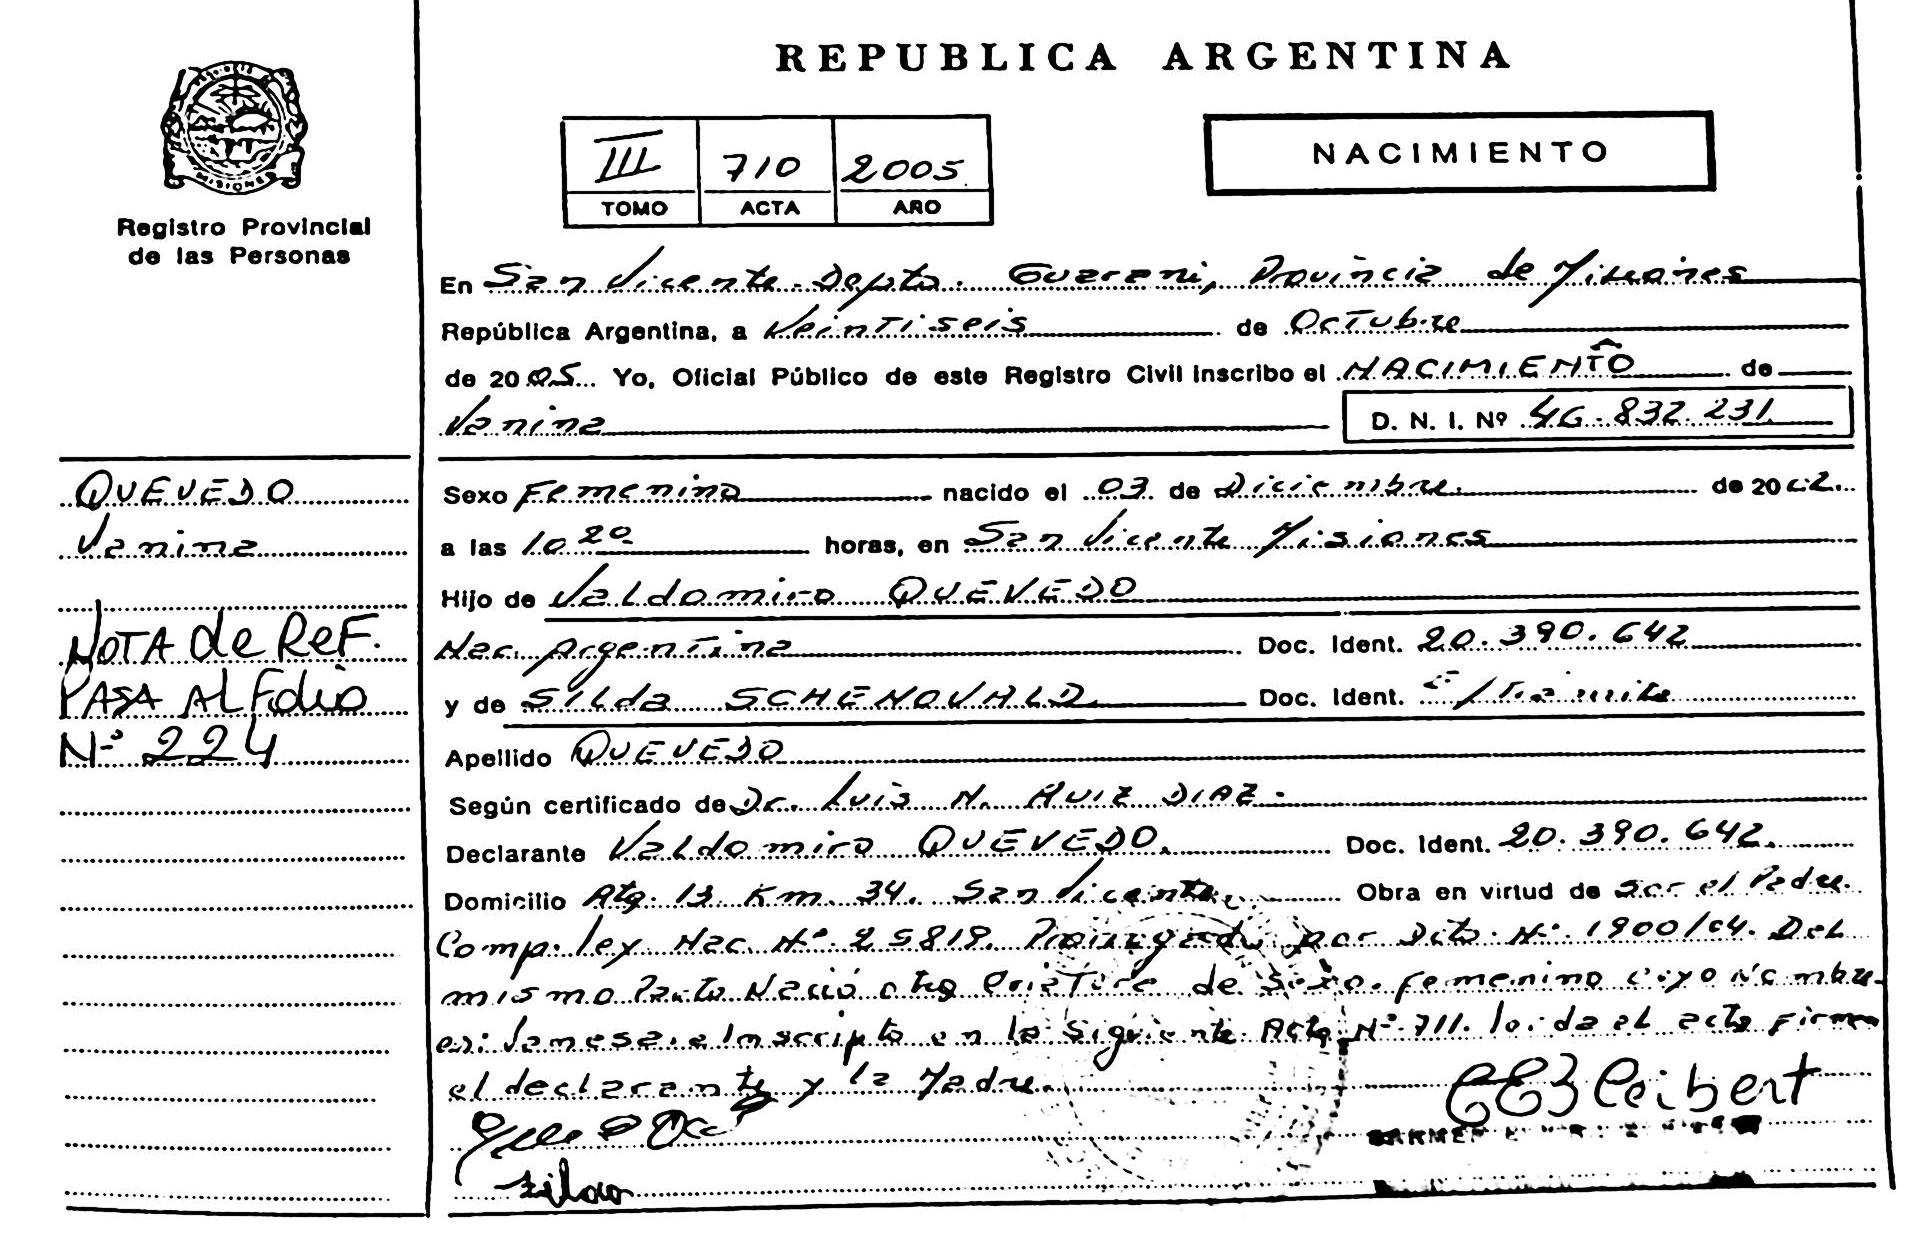 REPUBLICA ARGENTINA
MISIONES
Registro Provincial
de las Personas
III 710 2005
TOMO ACTA AÑO
NACIMIENTO
En San Vicente Depto. Guarani, Provincia de Misiones
República Argentina, a Veintiseis de Octubre
de 2005 Yo, Oficial Público de este Registro Civil inscribo el NACIMIENTO de
Vanina D. N. I. Nº 46.832.231
QUEVEDO
Vanina
NOTA de REF.
PASA AL Folio
Nº 224
Sexo Femenino nacido el 03 de Diciembre de 2002
a las 10 20 horas, en San Vicente Misiones
Hijo de Valdomiro QUEVEDO
Nac. Argentina Doc. Ident. 20.390.642
y de Silda SCHENOVALD Doc. Ident. E/Tramite
Apellido QUEVEDO
Según certificado de Dr. Luis N. RUIZ DIAZ.
Declarante Valdomiro QUEVEDO. Doc. Ident. 20.390.642.
Domicilio Atg. 13 Km. 34. San Vicente Obra en virtud de ser el Padre.
Comp. ley Nac. Nº 25819. por Dcto. Nº 1900/04. Del
mismo Parto Nació otra Criatura de Sexo Femenino cuyo Nombre
es: Inscripto en la Siguiente Acta Nº 711. leida el acta Firman
el declarante y la Madre.